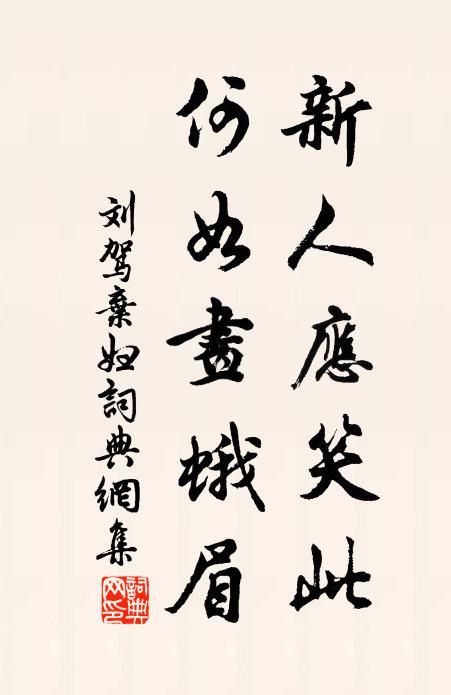 新人應笑此
何如畫蛾眉
刘駕棄妇詞典網集
詞典网印